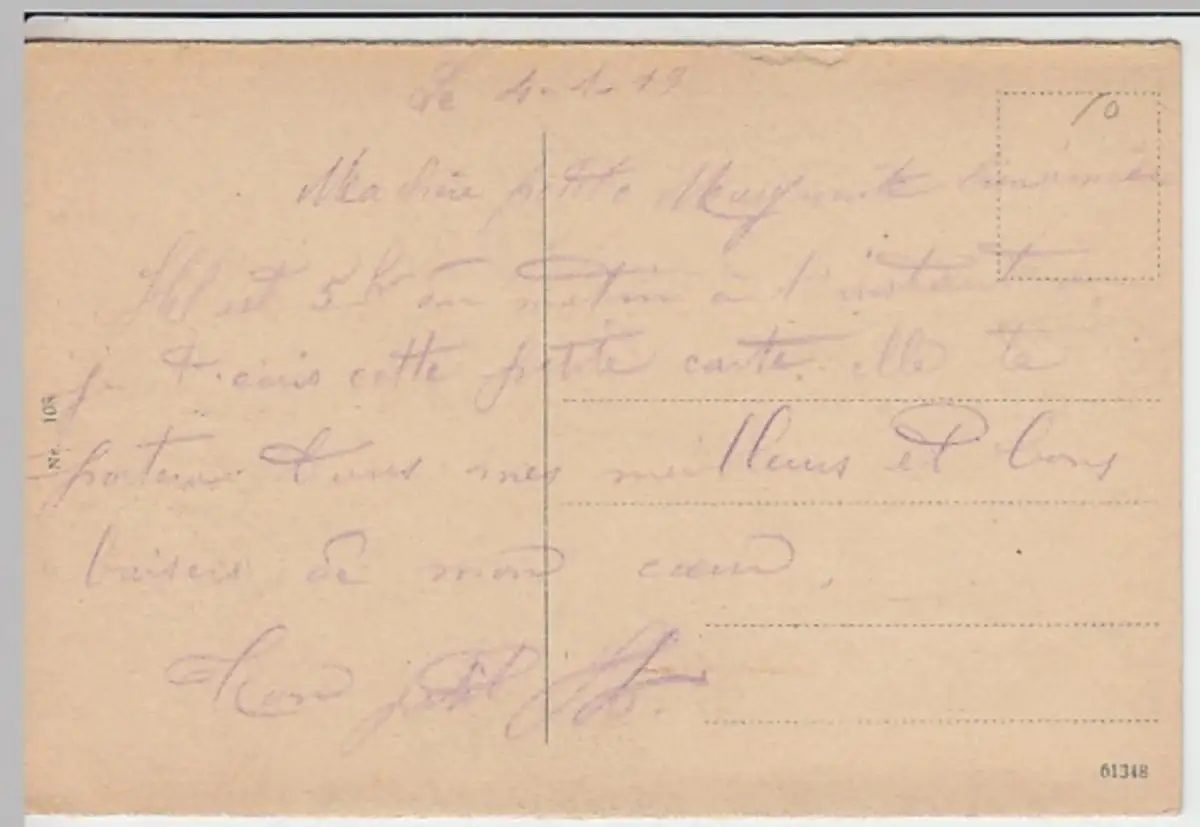 Le 4-1-19
10
Ma chère petite Marguerite bien aimée
Il est 5h du matin à l'instant
je t'écris cette petite carte elle te
portera tous mes meilleurs et bons
baisers de mon cœur,
Ton petit
Nr. 108
61348